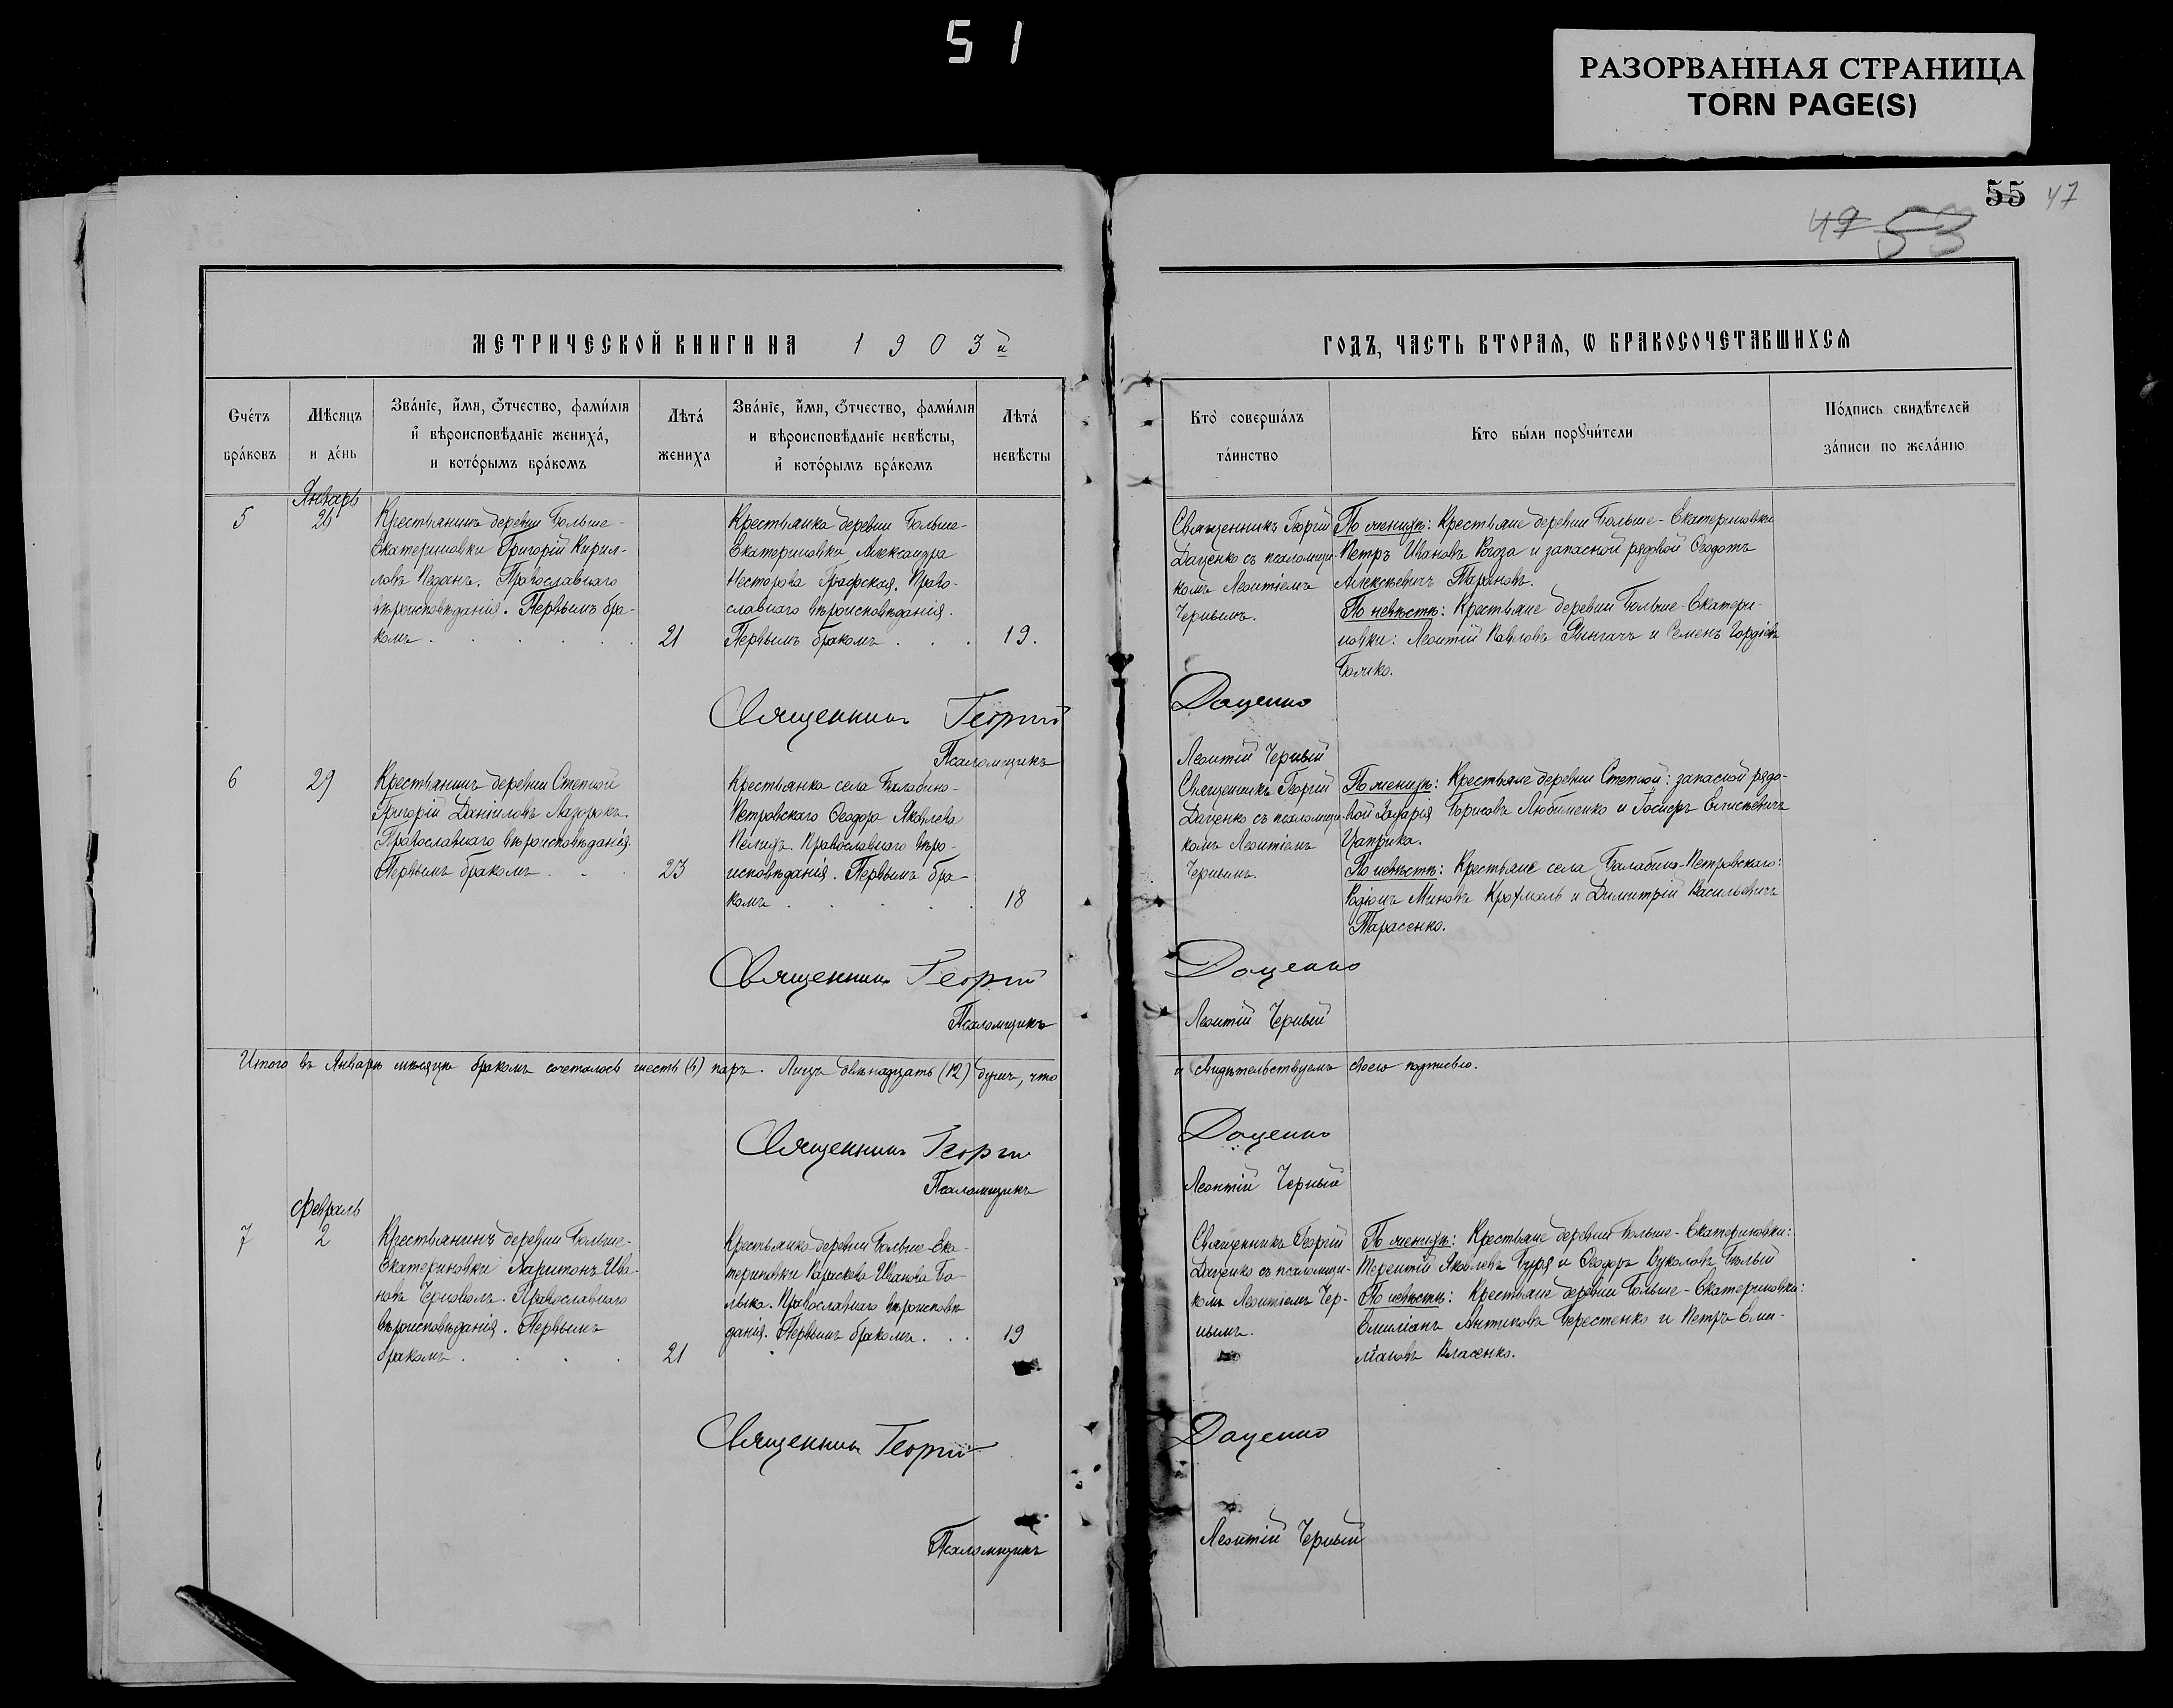 51
РАЗОРВАННАЯ СТРАНИЦА
TORN PAGE(S)
55 47
49 53
МЕТРИЧЕСКОЙ КНИГИ НА 1903й
ГОДЪ, ЧАСТЬ ВТОРАЯ, Ѡ БРАКОСОЧЕТАВШИХСЯ
Счетъ браковъ
Мѣсяцъ и день
Званіе, имя, отчество, фамилія
и вѣроисповѣданіе жениха,
и которымъ бракомъ
Лѣта жениха
Званіе, имя, отчество, фамилія
и вѣроисповѣданіе невѣсты,
и которымъ бракомъ
Лѣта невѣсты
Кто совершалъ таинство
Кто были поручители
Подпись свидѣтелей
записи по желанію
Январь
5
26
Крестьянинъ деревни Больше-
Екатериновки Григорій Кирил-
ловъ Педанъ. Православнаго
вѣроисповѣданія. Первымъ бра-
комъ
21
Крестьянка деревни Больше-
Екатериновки Александра
Несторова Графская. Право-
славнаго вѣроисповѣданія.
Первымъ бракомъ
19.
Священникъ Георгій
Даценко съ псаломщи-
комъ Леонтіемъ
Чернымъ.
По женихѣ: Крестьяне деревни Больше-Екатериновки
Петръ Ивановъ и запасной рядовой Ѳеодотъ
Алексѣевичъ Тарановъ.
По невѣстѣ: Крестьяне деревни Больше-Екатери-
новки: Леонтій Павловъ и Семенъ Гордіевъ
Священникъ Георгій Даценко
Псаломщикъ Леонтій Черный
6
29
Крестьянинъ деревни Степной
Григорій Даніиловъ Лазоракъ.
Православнаго вѣроисповѣданія.
Первымъ бракомъ
23
Крестьянка села Балабино-
Петровскаго Ѳеодора Яковлева
Пелихъ. Православнаго вѣро-
исповѣданія. Первымъ бра-
комъ
18
Священникъ Георгій
Даценко съ псаломщи-
комъ Леонтіемъ
Чернымъ.
По женихѣ: Крестьяне деревни Степной: запасной рядо-
вой Захарія Борисовъ Любименко и Іосифъ Елисѣевичъ
Цаприка.
По невѣстѣ: Крестьяне села Балабино-Петровскаго:
Родіонъ Миновъ Крохмаль и Димитрій Васильевичъ
Тарасенко.
Священникъ Георгій Даценко
Псаломщикъ Леонтій Черный
Итого въ Январѣ мѣсяцѣ бракомъ сочеталось шесть (6) паръ. Лицъ двѣнадцать (12) душъ, что
и свидѣтельствуемъ своею подписью.
Священникъ Георгій Даценко
Псаломщикъ Леонтій Черный
Февраль
7
2
Крестьянинъ деревни Больше-
Екатериновки Харитонъ Ива-
новъ Черноволъ. Православнаго
вѣроисповѣданія. Первымъ
бракомъ
21
Крестьянка деревни Больше-Ека-
териновки Параскева Иванова Бо-
лько. Православнаго вѣроисповѣ
данія. Первымъ бракомъ
19
Священникъ Георгій
Даценко съ псаломщи-
комъ Леонтіемъ Чер-
нымъ.
По женихѣ: Крестьяне деревни Больше-Екатериновки:
Терентій Яковлевъ Буря и Ѳеодоръ Вуколовъ Бѣлый
По невѣстѣ: Крестьяне деревни Больше-Екатериновки:
Емиліанъ Антиповъ Берестенко и Петръ Еми-
ліановъ Власенко.
Священникъ Георгій Даценко
Псаломщикъ Леонтій Черный